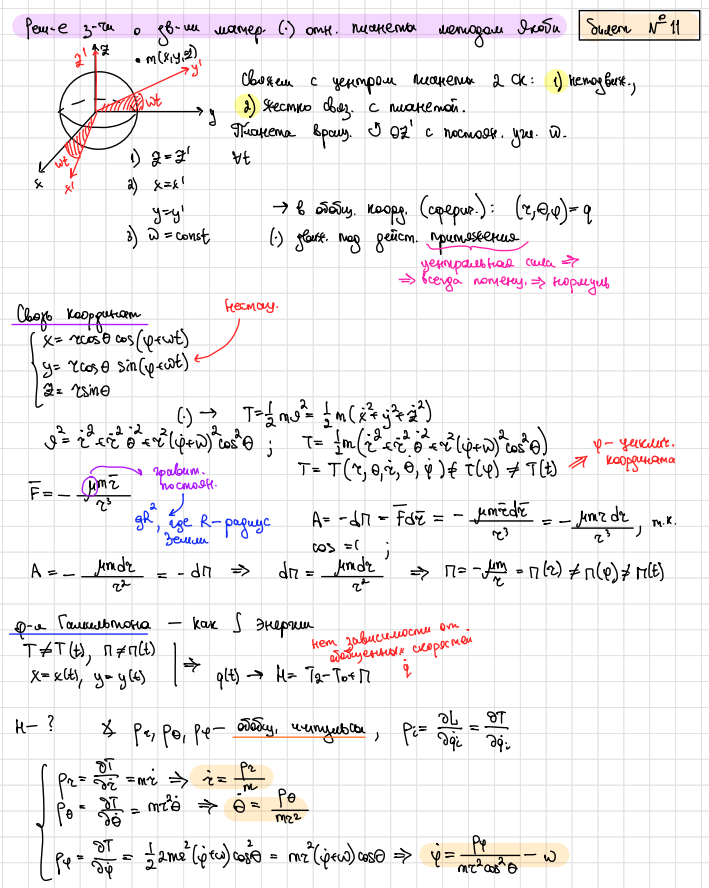 Реш-е з-чи о дв-ии матер. (·) отн. планеты методом Якоби
Билет №11
z' z
· m(x,y,z)
y'
wt
y
wt
x x'
Свяжем с центром планеты 2 СК: 1) неподвиж.,
2) жестко связ. с планетой.
Планета вращ. ↺ OZ' с постоян. угл. w.
1) z = z' ∀t
2) x = x'
y = y'
3) w = const
→ в обобщ. коорд. (сферич.): (r, θ, φ) = q
(·) движ. под дейст. притяжения
центральная сила ⇒
⇒ всегда потенц. ⇒ нормуль
Связь координат
Нестац.
x = rcosθ cos(φ+wt)
y = rcosθ sin(φ+wt)
z = rsinθ
(·) → T = 1/2 mϑ² = 1/2 m(ẋ² + ẏ² + ż²)
ϑ² = ṙ² + ṙ² θ̇² + r²(φ̇+w)² cos²θ ; T = 1/2 m(ṙ² + ṙ² θ̇² + r²(φ̇+w)² cos²θ)
T = T(r, θ, ṙ, θ̇, φ̇) ≠ T(φ) ≠ T(t) ⇒ φ – циклич. координата
F̄ = – μmr̄ / r³
гравит. постоян.
gR², где R – радиус Земли
A = –dП = F̄dr̄ = – μmr̄dr̄ / r³ = – μmrdr / r³, т.к.
cos = 1 ;
A = – μmdr / r² = – dП ⇒ dП = μmdr / r² ⇒ П = – μm / r = П(r) ≠ П(φ) ≠ П(t)
φ-я Гамильтона – как ∫ энергии
T ≠ T(t), П ≠ П(t)
x = x(t), y = y(t) ⇒ q(t) → H = T₂ – T₀ + П
нет зависимости от обобщенных скоростей q̇
H – ? ∡ pr, pθ, pφ – обобщ. импульсы, pi = ∂L/∂q̇i = ∂T/∂q̇i
pr = ∂T/∂ṙ = mṙ ⇒ ṙ = pr / m
pθ = ∂T/∂θ̇ = mr²θ̇ ⇒ θ̇ = pθ / mr²
pφ = ∂T/∂φ̇ = 1/2 2mr²(φ̇+w)cos²θ = mr²(φ̇+w)cosθ ⇒ φ̇ = pφ / mr²cos²θ – w